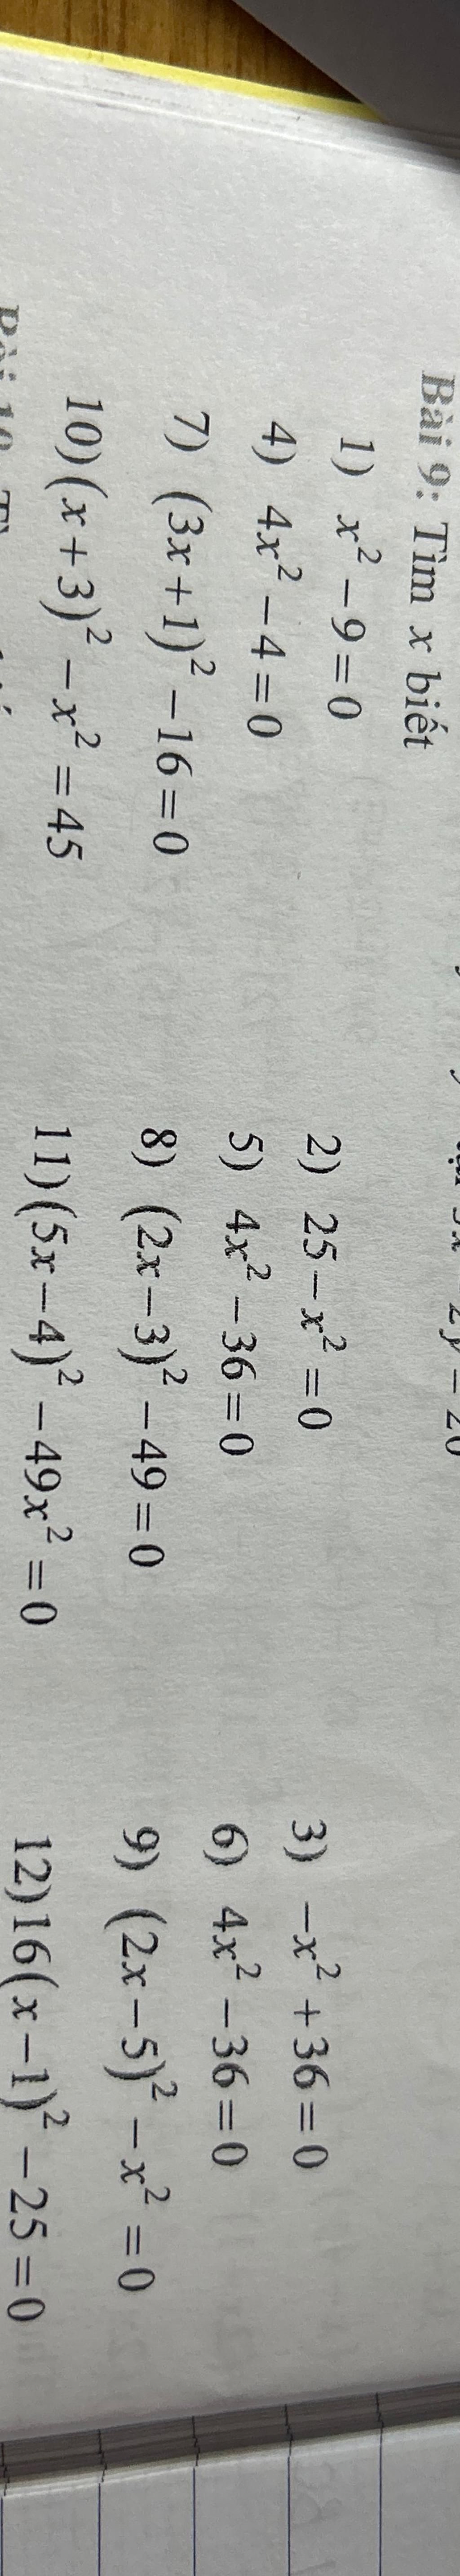 Bài 9: Tìm x biết
1) x² – 9 = 0 2) 25 – x² = 0 3) –x² + 36 = 0
4) 4x² – 4 = 0 5) 4x² – 36 = 0 6) 4x² – 36 = 0
7) (3x + 1)² – 16 = 0 8) (2x – 3)² – 49 = 0 9) (2x – 5)² – x² = 0
10) (x + 3)² – x² = 45 11) (5x – 4)² – 49x² = 0 12) 16(x – 1)² – 25 = 0